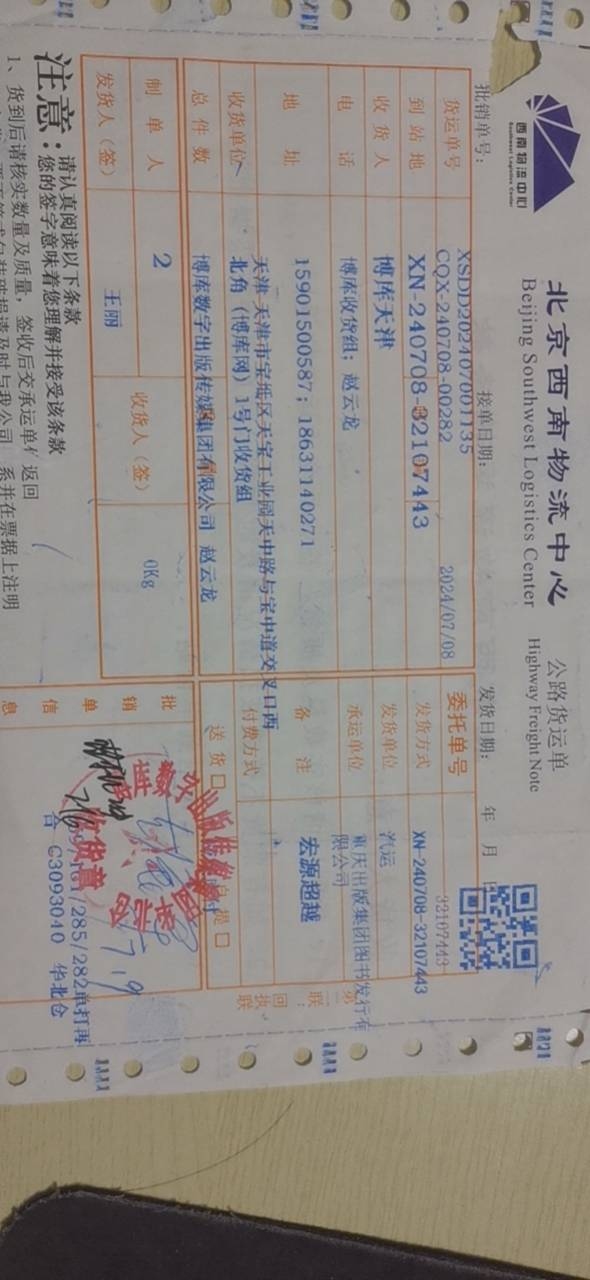 西南物流中心
Southwest Logistics Center
北京西南物流中心 公路货运单
Beijing Southwest Logistics Center Highway Freight Note
批销单号： 接单日期： 发货日期： 年 月 日
XSDD2024070001135
货运单号 CQX-240708-00282 2024/07/08 委托单号 32107443
到站地 XN-240708-32107443 发货方式 XN-240708-32107443
收货人 博库天津 发货单位 汽运
电话 博库收货组；赵云龙 承运单位 重庆出版集团图书发行有限公司
地址 15901500587；18631140271 备注 宏源超越
天津 天津市宝坻区天宝工业园天中路与宝中道交叉口西
收货单位 北角（博库网）1号门收货组 付费方式
总件数 博库数字出版传媒集团有限公司 赵云龙 送货 自提
制单人 2 收货人（签） 0Kg 批销单信息
发货人（签） 王丽
285/282单打再
合 C3093040 华北仓
收货章
7.9
注意：
请认真阅读以下条款
您的签字意味着您理解并接受该条款
1、货到后请核实数量及质量，签收后交承运单 返回
第二联：回执联